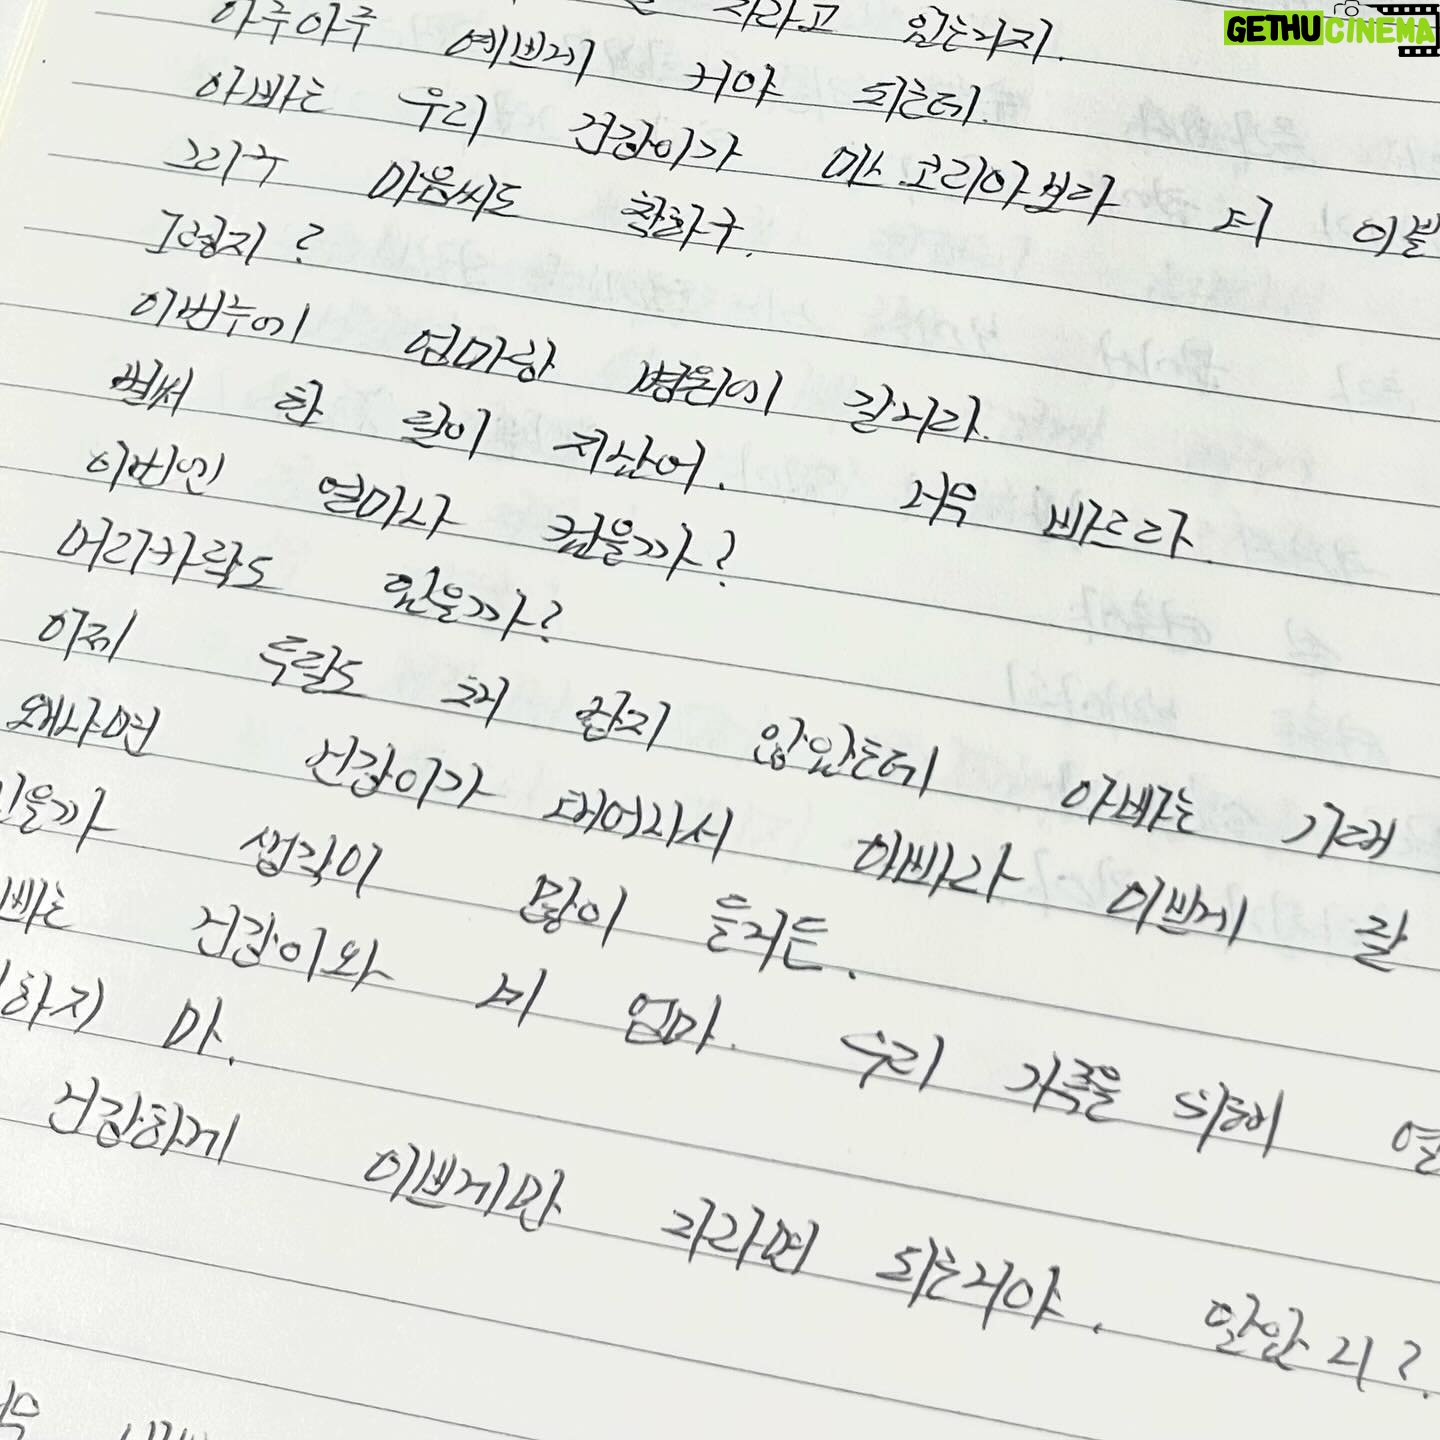 GETHUCINEMA
자라고 있는거지.
아주아주 예쁘게 커야 되는데.
아빠는 우리 건강이가 미스코리아보다 더 이쁠
그리구 마음씨도 착하구.
그렇지?
이번주에 엄마랑 병원에 갈거라.
벌써 한 달이 지났어. 너무 바르다.
이번엔 얼마나 컸을까?
머리카락도 있을까?
이제 두달도 채 남지 않았는데 아빠는 기대
왜냐면 건강이가 태어나서 아빠가 이쁘게 잘
있을까 생각이 많이 들거든.
빠는 건강이와 네 엄마. 우리 가족을 위해 열
하지 마.
건강하게 이쁘게만 자라면 되는거야. 알았지?